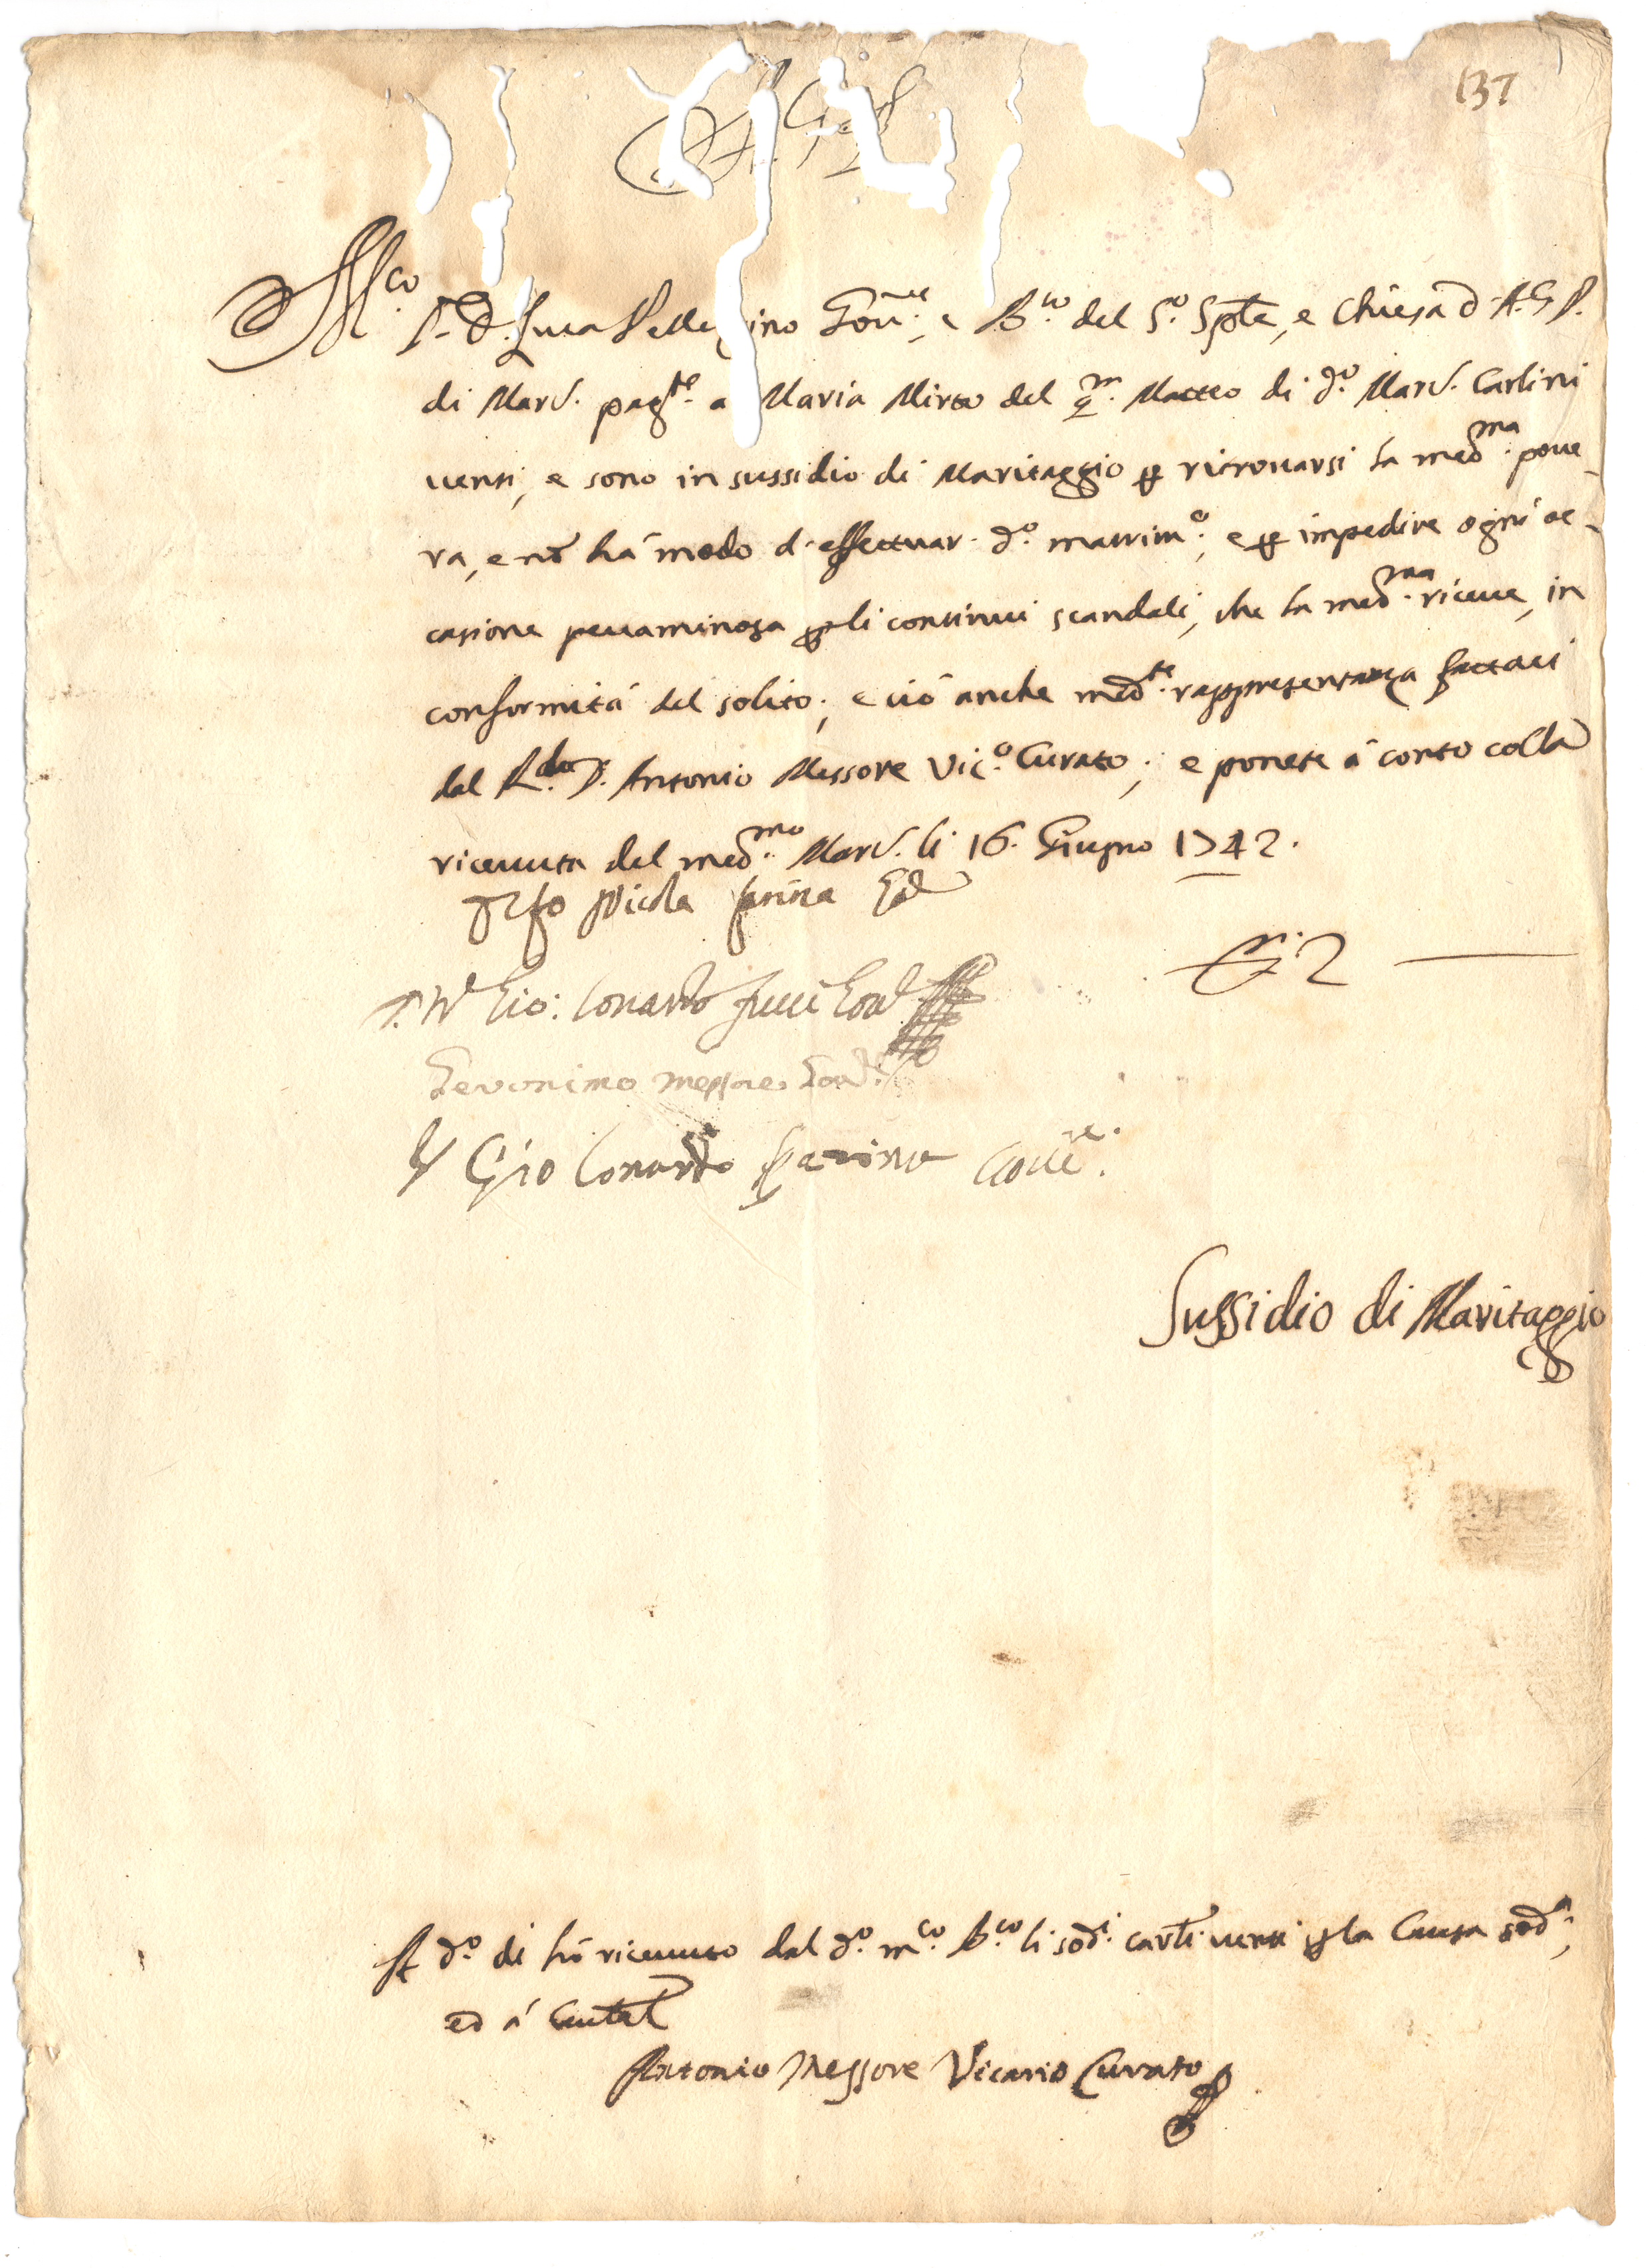 137
A. G. P.
M.co S.r D. Luca Pelle ino Gov.re, e B.co del S.o Spte, e Chiesa d' A.G.P.
di Mard. pag.te a Maria Mirto del q.m Matteo di d.o Mard. Carlini
venti, e sono in sussidio di Maritaggio p ritrovarsi la med.ma pove-
ra, e nō há modo d'effettuar d.o matrim.o, e p impedire ogni oc-
casione peccaminosa p li continui scandali, che la med.ma riceve, in
conformitá del solito; e ció anche med.te rappresentanza fattaci
dal R.do D. Antonio Messore Vic.o Curato; e ponete á conto colla
ricevuta del med.mo Mard. li 16. Giugno 1742.
Nicola farina
D. 2
Gio: Conardo fucci Gov.
Geronimo Messore Gov.
Gio Conardo farina Gove.
Sussidio di Maritaggio
A d.o di hó ricevuto dal d.o m.co B.co li sod.i carli venti p la Causa sod.a,
ed á Cautel
Antonio Messore Vicario Curato